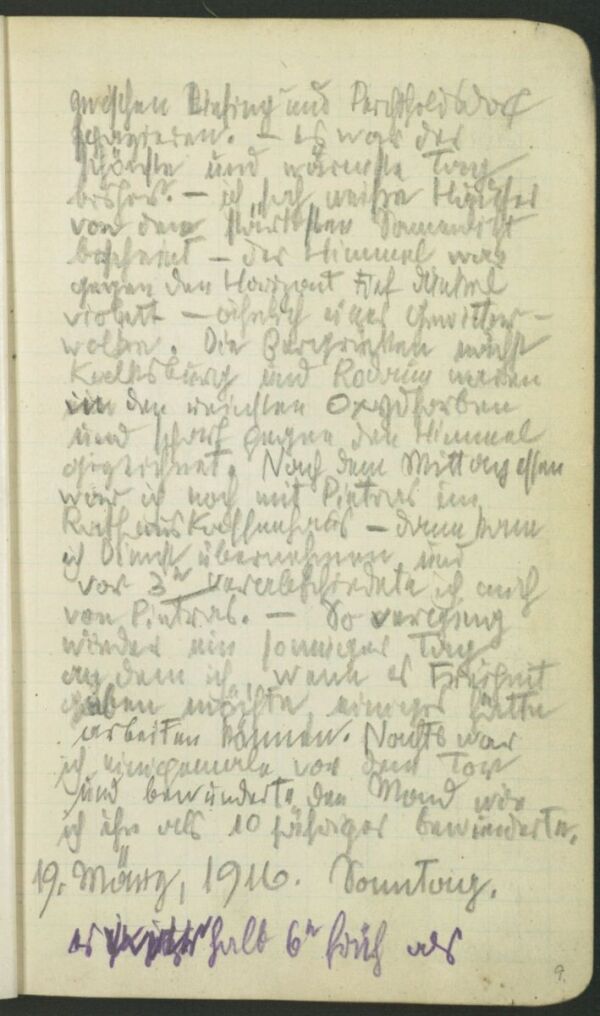 zwischen Liesing und Perchtholdsdorf
spazieren. – es war der
schönste und wärmste Tag
bisher. – ich sah weisse Häuser
von dem stärksten Sonnenlicht
bescheint – der Himmel war
gegen den Horizont tief dunkel
violett – ähnlich einer Gewitter-
wolke. Die Bergrietten nächst
Kalksburg und Rodaun waren
in den reichsten Oxydfarben
und scharf gegen den Himmel
gezeichnet. Nach dem Mittagessen
war ich noch mit Pietras im
Rathauskaffeehaus – dann kam
ich Dienst übernehmen und
vor 3h verabschiedete ich mich
von Pietras. – So verging
wieder ein sonniger Tag
an dem ich, wenn es Freiheit
geben möchte, einiges hätte
arbeiten können. Nachts war
ich einigemale vor dem Tor
und bewunderte den Mond wie
ich ihn als 10 jähriger bewunderte.
19. März, 1916. Sonntag.
es halb 6h früh als
9.